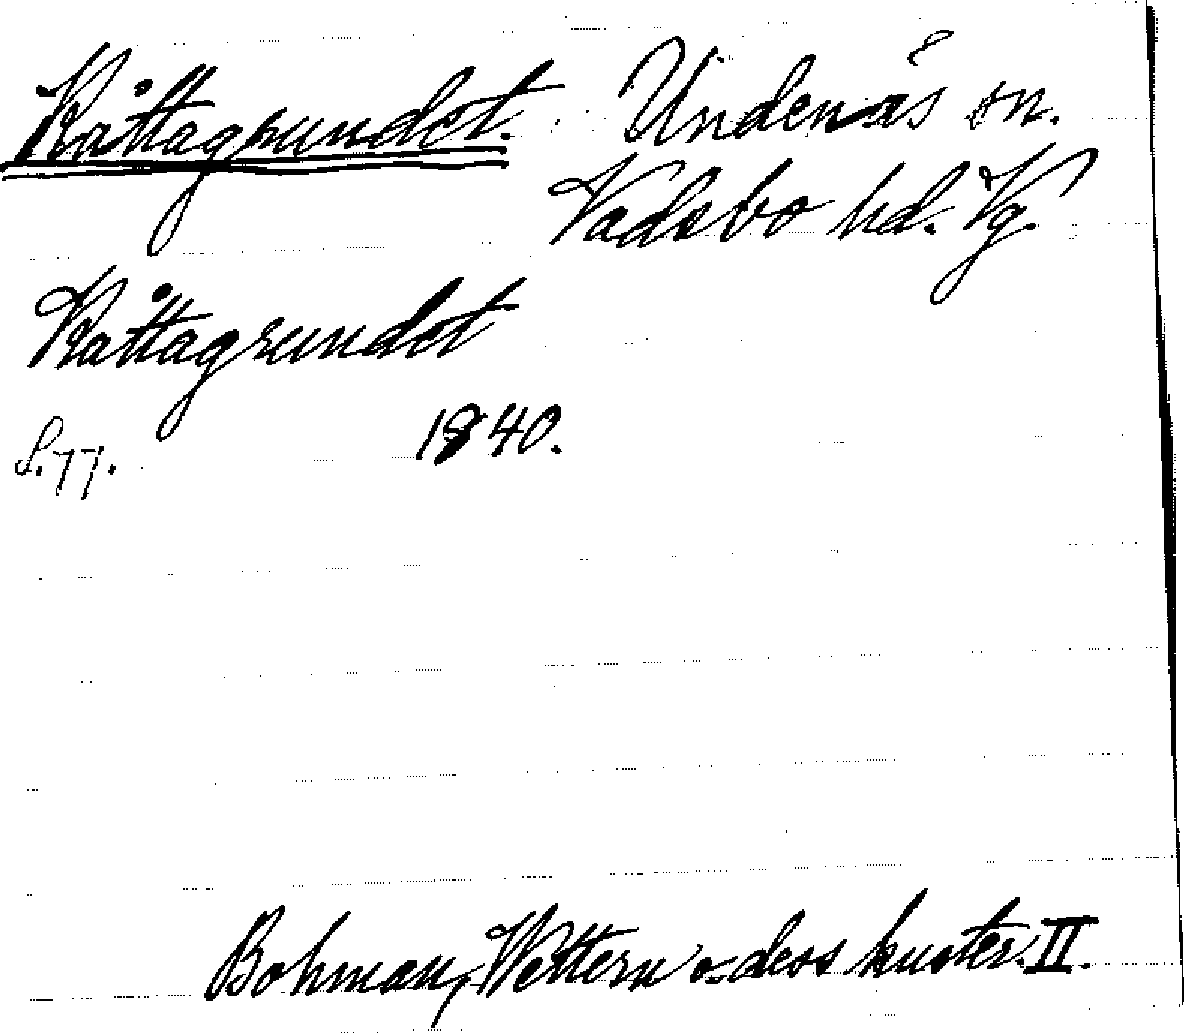 Råttagrundet. Undenäs sn.
Vadsbo hd. Vg.
Råttagrundet
S. 77. 1840.
Bohman, Wettern o. dess kuster. II.